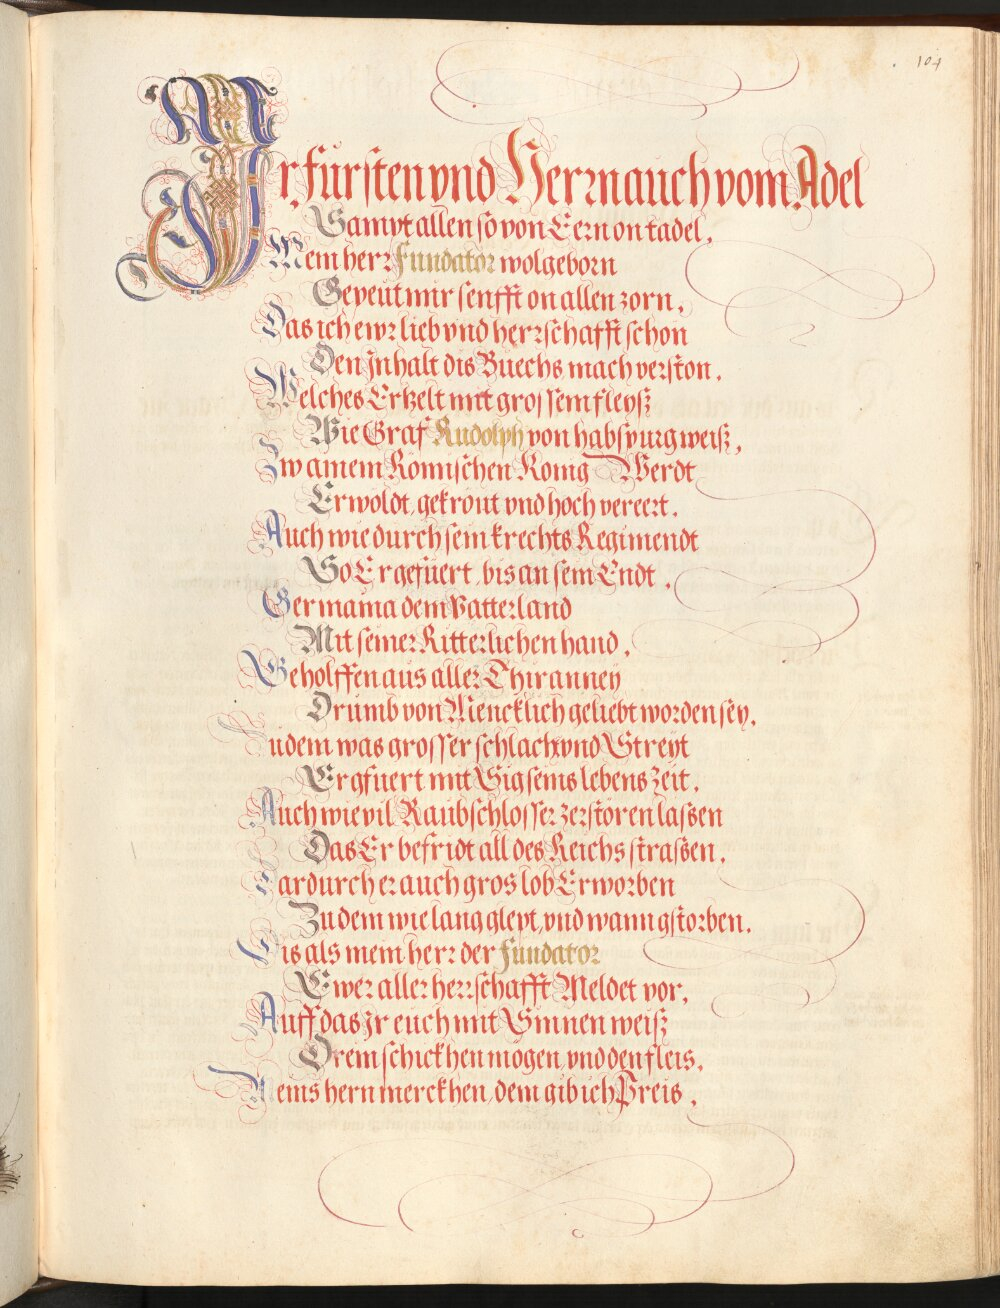 104
Ir fürsten vnd Herrn auch vom Adel
Sampt allen so von Eern on tadel,
Mein herr Fundator wolgeborn
Gepeut mir senfft on allen zorn,
Das ich ewr lieb vnd herrschafft schon
Den Inhalt dis Buechs mach verston,
Welches Erzelt mit grossem fleyß
Wie Graf Rudolph von habspurg weiß,
Zw ainem Römischen König Werdt
Erwoldt, gekrönt vnd hoch vereert,
Auch wie durch sein krechts Regimendt
So Er gefüert, bis an sein Endt,
Germania dem Vatterland
Mit seiner Ritterlichen hand,
Geholffen aus aller Thiranney
Drumb von Mencklich geliebt worden sey,
Zudem was grosser schlacht vnd Streyt
Er gfuert mit Sig seins lebens Zeit,
Auch wie vil Raubschlosser zerstören lassen
Das Er befridt all des Reichs strassen,
Dardurch er auch gros lob Erworben
Zudem wie lang glept, vnd wann gstorben.
Dis als mein herr der Fundator
Ewer aller herrschafft Meldet vor,
Auff das Ir euch mit Sinnen weiß
Drein schickhen mögen, vnd den fleis,
Meins hern merckhen, dem gib ich Preis,